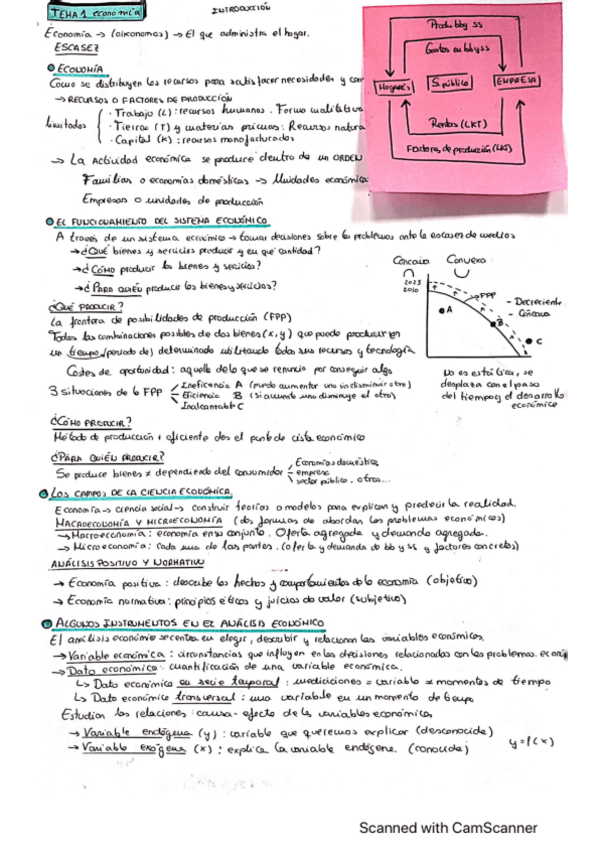 TEMA 1 economía
INTRODUCCIÓN
Economía → (oikonomos) → El que administra el hogar.
ESCASEZ
Produc bb y ss
Gastos en bb y ss
HOGARES
S. público
EMPRESA
Rentas (LKT)
Factores de producción (LKT)
ECONOMÍA
Como se distribuyen los recursos para satisfacer necesidades y con
→ RECURSOS O FACTORES DE PRODUCCIÓN
limitados
· Trabajo (L): recursos humanos. Forma cualitativa
· Tierra (T) y materias primas: Recursos natura
· Capital (K): recursos manofacturados
→ La Actividad económica se produce dentro de un ORDEN
Familias o economías domésticas → Unidades económica
Empresas o unidades de producción
EL FUNCIONAMIENTO DEL SISTEMA ECONÓMICO
A través de un sistema económico → tomar decisiones sobre los problemas ante la escasez de medios
→ ¿QUÉ bienes y servicios producir y en qué cantidad?
→ ¿CÓMO producir los bienes y servicios?
→ ¿PARA QUIÉN producir los bienes y servicios?
Cóncava Convexa
2023
2010
FPP
A
B
C
- Decreciente
- Cóncava
No es estática, se
desplaza con el paso
del tiempo y el desarrollo
económico
¿QUÉ PRODUCIR?
La frontera de posibilidades de producción (FPP)
Todas las combinaciones posibles de dos bienes (x, y) que puede producir en
un tiempo (periodo de) determinado utilizando todos sus recursos y tecnología
Costes de oportunidad: aquello de lo que se renuncia por conseguir algo
3 situaciones de la FPP
Ineficiencia A (puedo aumentar uno sin disminuir otro)
Eficiencia B (si aumento uno disminuye el otro)
Inalcanzable C
¿CÓMO PRODUCIR?
Método de producción + eficiente des el punto de vista económico
¿PARA QUIÉN PRODUCIR?
Se produce bienes ≠ dependiendo del consumidor
Economías domésticas
empresa
sector público, otros...
LOS CAMPOS DE LA CIENCIA ECONÓMICA.
Economía → ciencia social → construir teorías o modelos para explicar y predecir la realidad.
MACROECONOMÍA Y MICROECONOMÍA (dos formas de abordar los problemas económicos)
→ Macroeconomía: economía en su conjunto. Oferta agregada y demanda agregada.
→ Microeconomía: cada una de las partes. (oferta y demanda de bb y ss y factores concretos)
ANÁLISIS POSITIVO Y NORMATIVO
→ Economía positiva: describe los hechos y comportamientos de la economía (objetivo)
→ Economía normativa: principios éticos y juicios de valor (subjetivo)
ALGUNOS INSTRUMENTOS EN EL ANÁLISIS ECONÓMICO
El análisis económico se centra en elegir, describir y relacionar las variables económicas.
→ Variable económica: circunstancias que influyen en las decisiones relacionadas con los problemas. econó
→ Dato económico: cuantificación de una variable económica.
↳ Dato económico en serie temporal: mediciones = variable ≠ momentos de tiempo
↳ Dato económico transversal: una variable en un momento de tiempo
Estudian las relaciones causa-efecto de las variables económicas.
→ Variable endógena (y): variable que queremos explicar (desconocida)
→ Variable exógena (x): explica la variable endógena. (conocida)
y=f(x)
Scanned with CamScanner